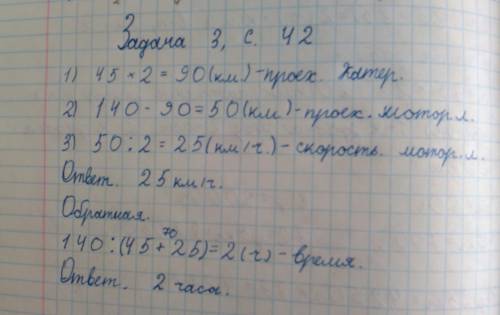 Задача 3, с. 42
1) 45 × 2 = 90 (км) - проех. катер.
2) 140 - 90 = 50 (км) - проех. мотор. л.
3) 50 : 2 = 25 (км/ч.) - скорость. мотор. л.
Ответ. 25 км/ч.
Обратная.
70
140 : (45 + 25) = 2 (ч) - время.
Ответ. 2 часа.